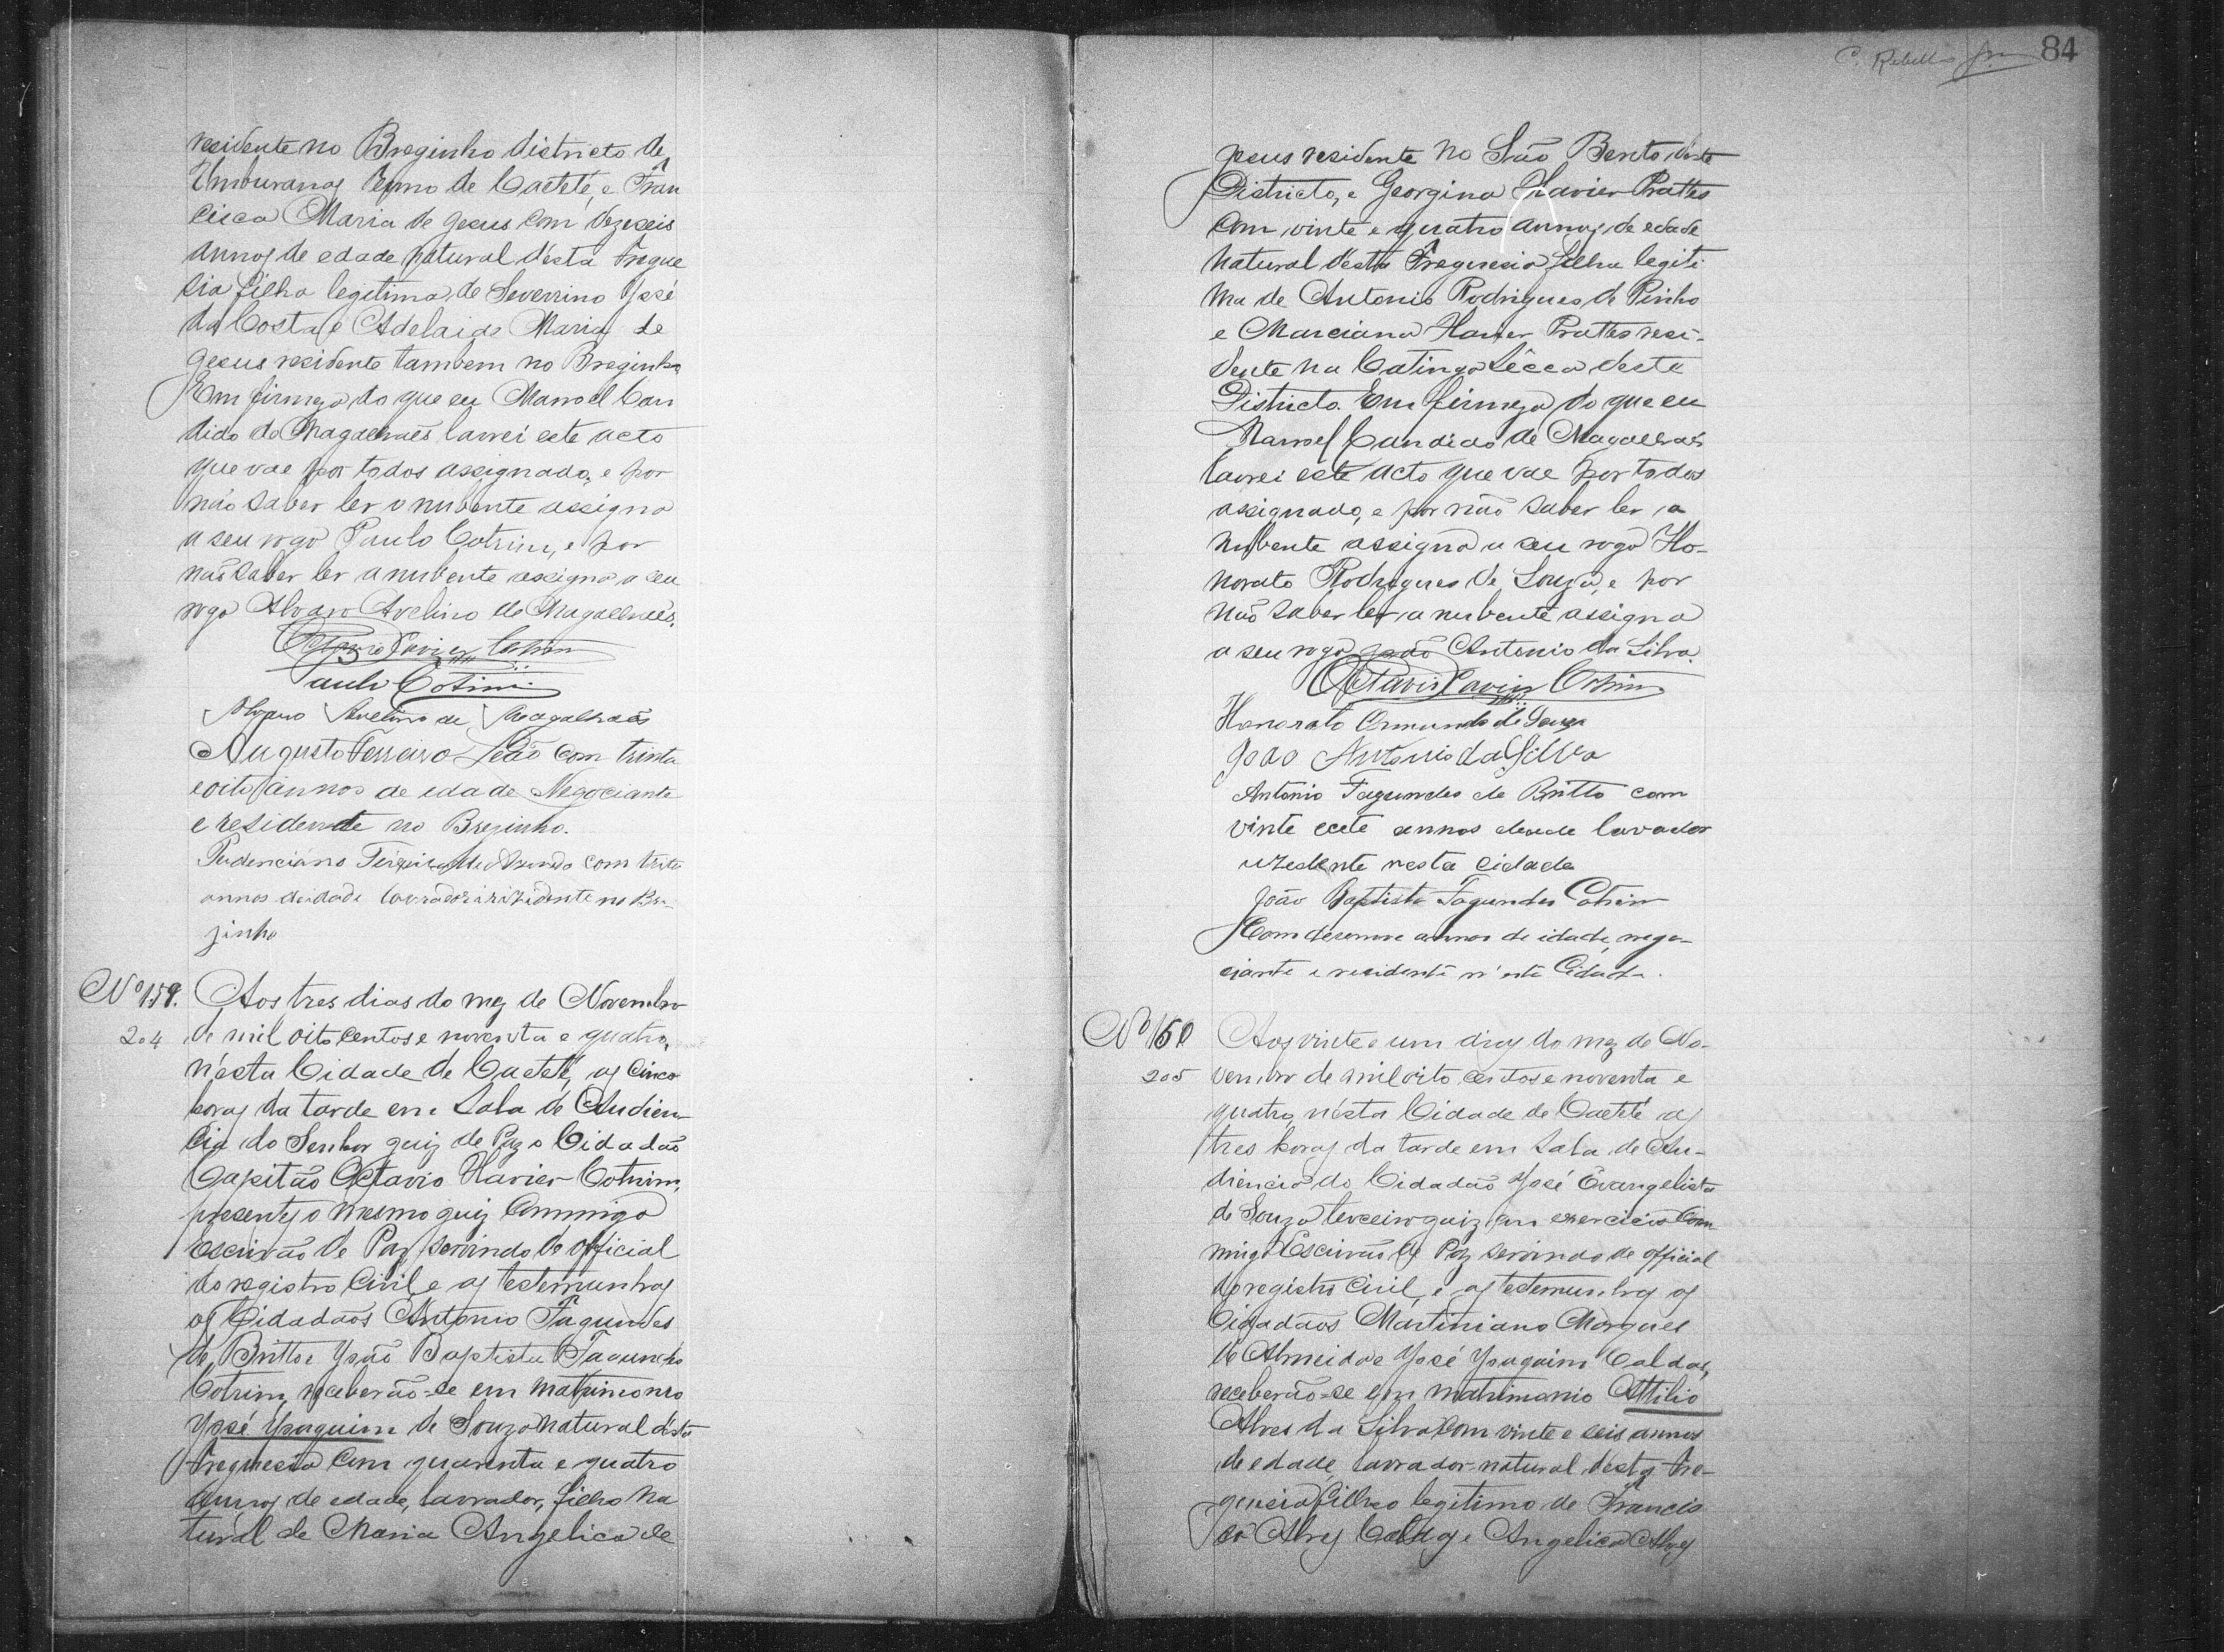 residente no Breginho districto de
Umburanas Termo de Caeteté, e Fran
cisca Maria de Jesus com dezeseis
annos de edade natural désta Fregue
sia filha legitima de Severino José
da Costa e Adelaide Maria de
Jesus residente tambem no Breginho
Em firmeza do que eu Manoel Can
dido de Magalhaes lavrei este acto
que vae por todos assignado, e por
não saber ler o nubente assigna
a seu rogo Paulo Cotrim, e por
não saber ler a nubente assigna a seu
rogo Alvaro Avelino de Magalhaes.
Octavio Xavier Cotrim
Paulo Cotrim
Alvaro Avelino de Magalhães
Augusto Ferreira Leão com trinta
e oito annos de edade Negociante
e residente no Breginho.
com trita
annos deidade lavrador i rizidente no Bre-
jinho
Nº 159. Aos tres dias do mez de Novembro
204 de mil oito centos e noventa e quatro,
nésta Cidade de Caeteté, as Cinco
horas da tarde em Sala de Audien
cia do Senhor Juiz de Paz o Cidadão
Capitão Octavio Xavier Cotrim,
presentes o mesmo Juiz Commigo
Escrivão de Paz servindo de official
do registro Civil e as testemunhas
os Cidadãos Antonio Fagundes
de Britto e João Baptista Fagundes
Cotrim, receberão-se em matrimonio
José Joaquim de Souza natural désta
Freguesia com quarenta e quatro
annos de edade, lavrador, filho na
tural de Maria Angelica de
C. Rebello Jr. 84
Jesus residente no São Bento deste
Districto, e Georgina Xavier Prattes
com vinte e quatro annos de edade
natural désta Freguesia filha legiti
ma de Antonio Rodrigues de Pinho
e Marciana Xavier Prattes resi-
dente na Catinga Sêcca deste
Districto. Em firmeza do que eu
Manoel Candido de Magalhaes
lavrei este acto que vae por todos
assignado, e por não saber ler, o
nubente assigna a seu rogo Ho-
norato Rodrigues de Souza, e por
não saber ler a nubente assigna
a seu rogo João Antonio da Silva.
Octavio Xavier Cotrim
Honorato de Souza
João Antonio da Silva
Antonio Fagundes de Britto com
vinte e cete annos deade lavador
urezedente nesta cidade
João Baptista Fagundes Cotrim
Com desenove annos de idade, nego-
ciante e residente n'esta Cidade.
Nº 160 Aos vinte e um dias do mez de No-
205 vembro de mil oito centos e noventa e
quatro, nésta Cidade de Caeteté as
tres horas da tarde em Sala de Au-
diencia do Cidadão José Evangelista
de Souza terceiro Juiz em exercicio Com
migo Escrivão de Paz servindo de official
do registro Civil, e as testemunhas os
Cidadãos Martiniano Marques
de Almeida e José Joaquim Caldas,
receberão-se em matrimonio Attilio
Alves da Silva com vinte e seis annos
de edade, lavrador natural désta Fre-
guesia filho legitimo de Francis
co Alves Caldas e Angelica Alves